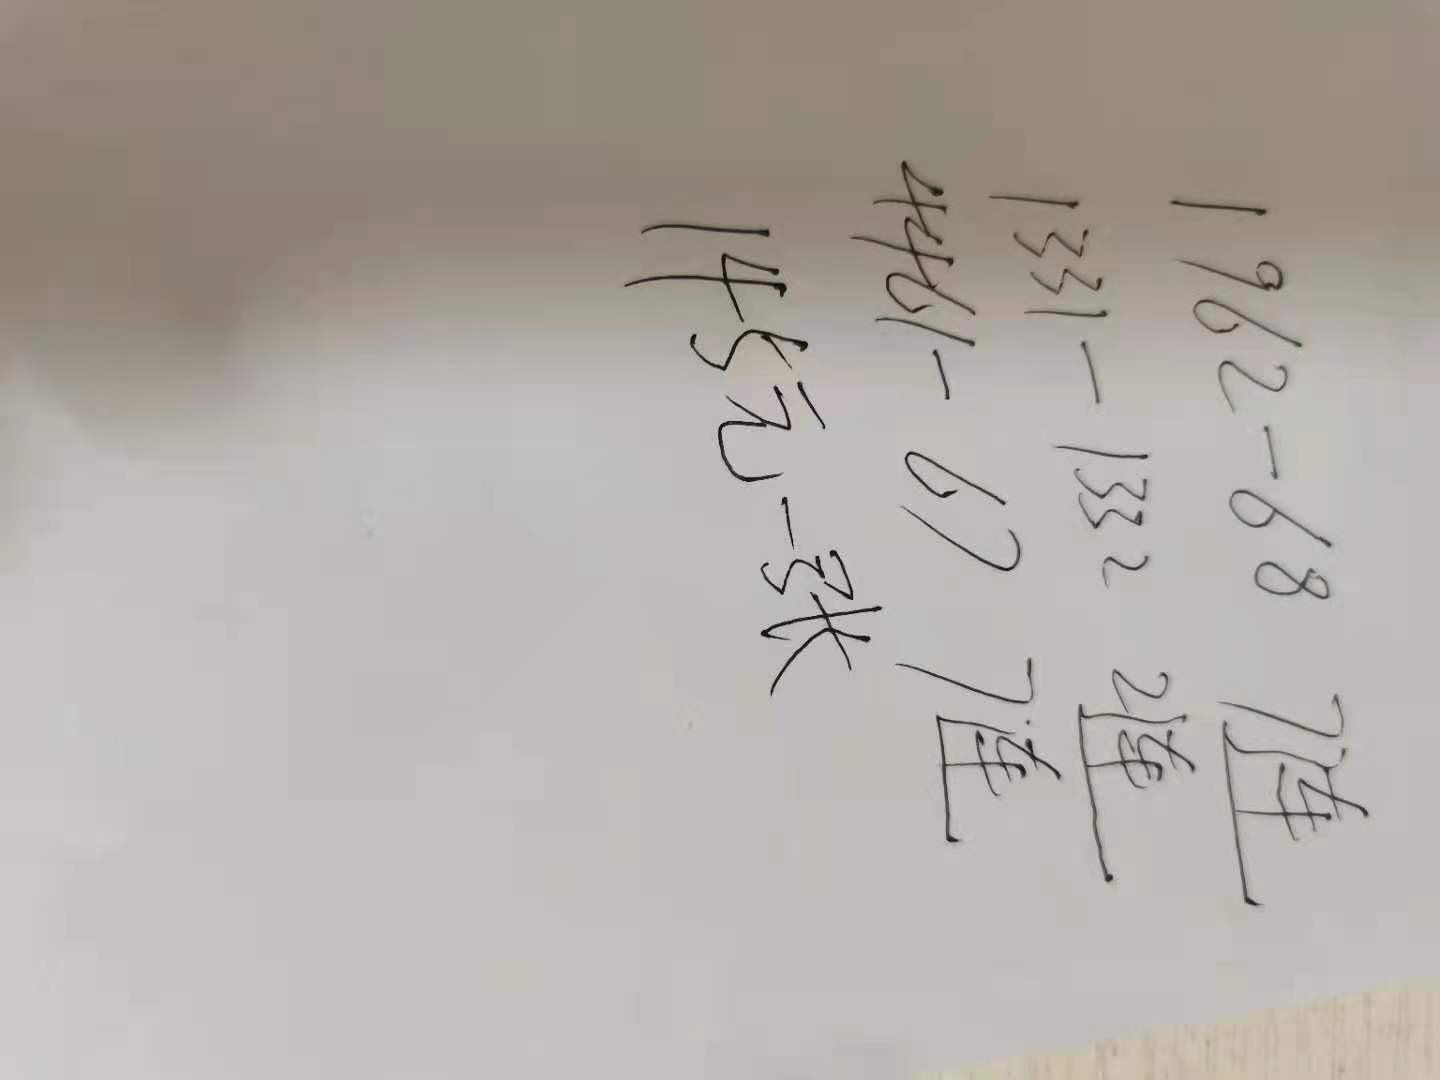 1962-68 7连
1331-1332 2连
4461-67 7连
145元-3张